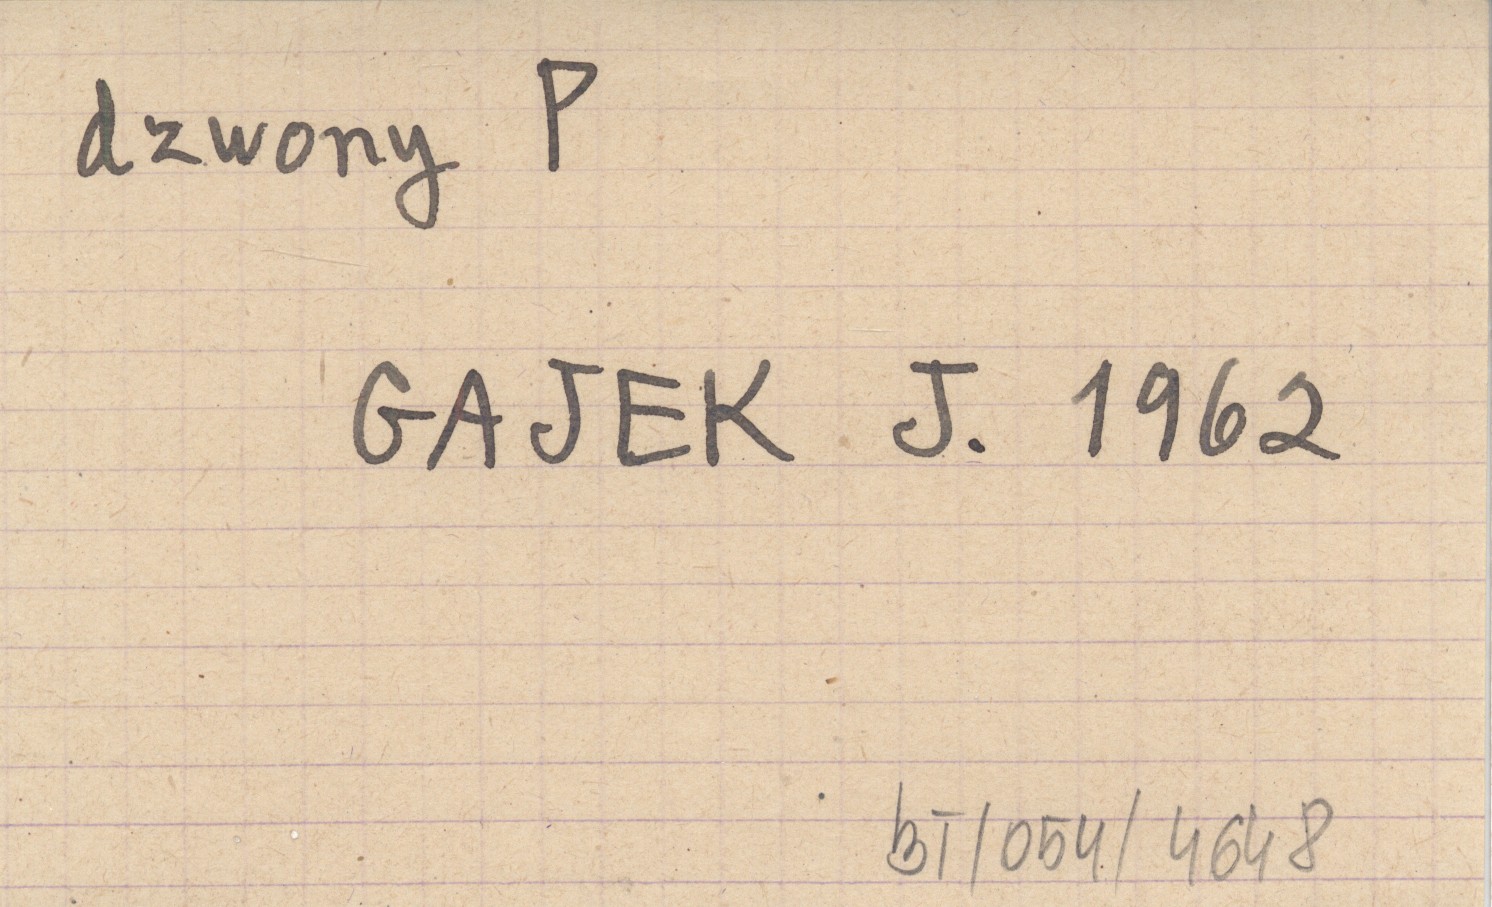 dzwony P
GAJEK J. 1962
BI/054/4648